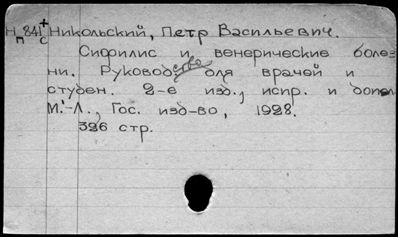 Н 841+ Никольский, Петр Васильевич.
П с
Сифилис и венерические болез-
ни. Руководство для врачей и
студен. 2-е изд., испр. и допол.
М.-Л., Гос. изд-во, 1928.
326 стр.